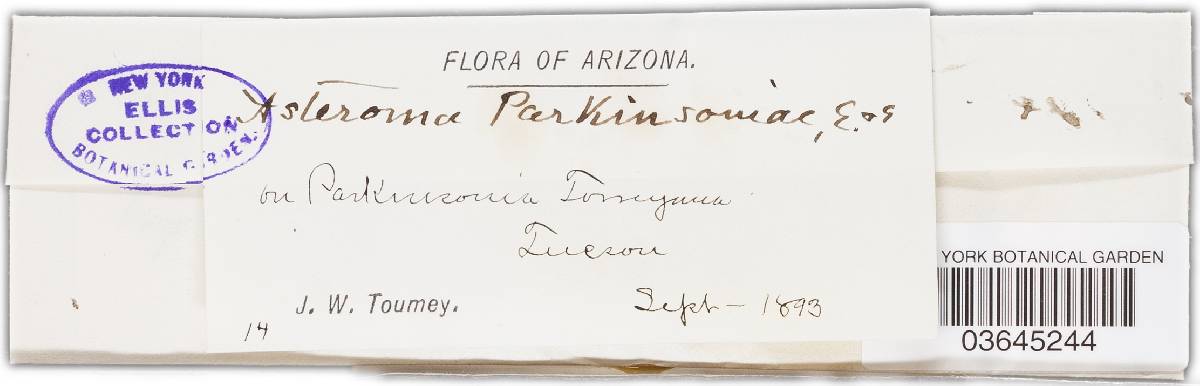 FLORA OF ARIZONA.
NEW YORK
ELLIS
COLLECTION
BOTANICAL GARDEN.
Asteroma Parkinsoniae, E. & E
on Parkinsonia Torreyana
Tucson
YORK BOTANICAL GARDEN
J. W. Toumey. Sept - 1893
14
03645244